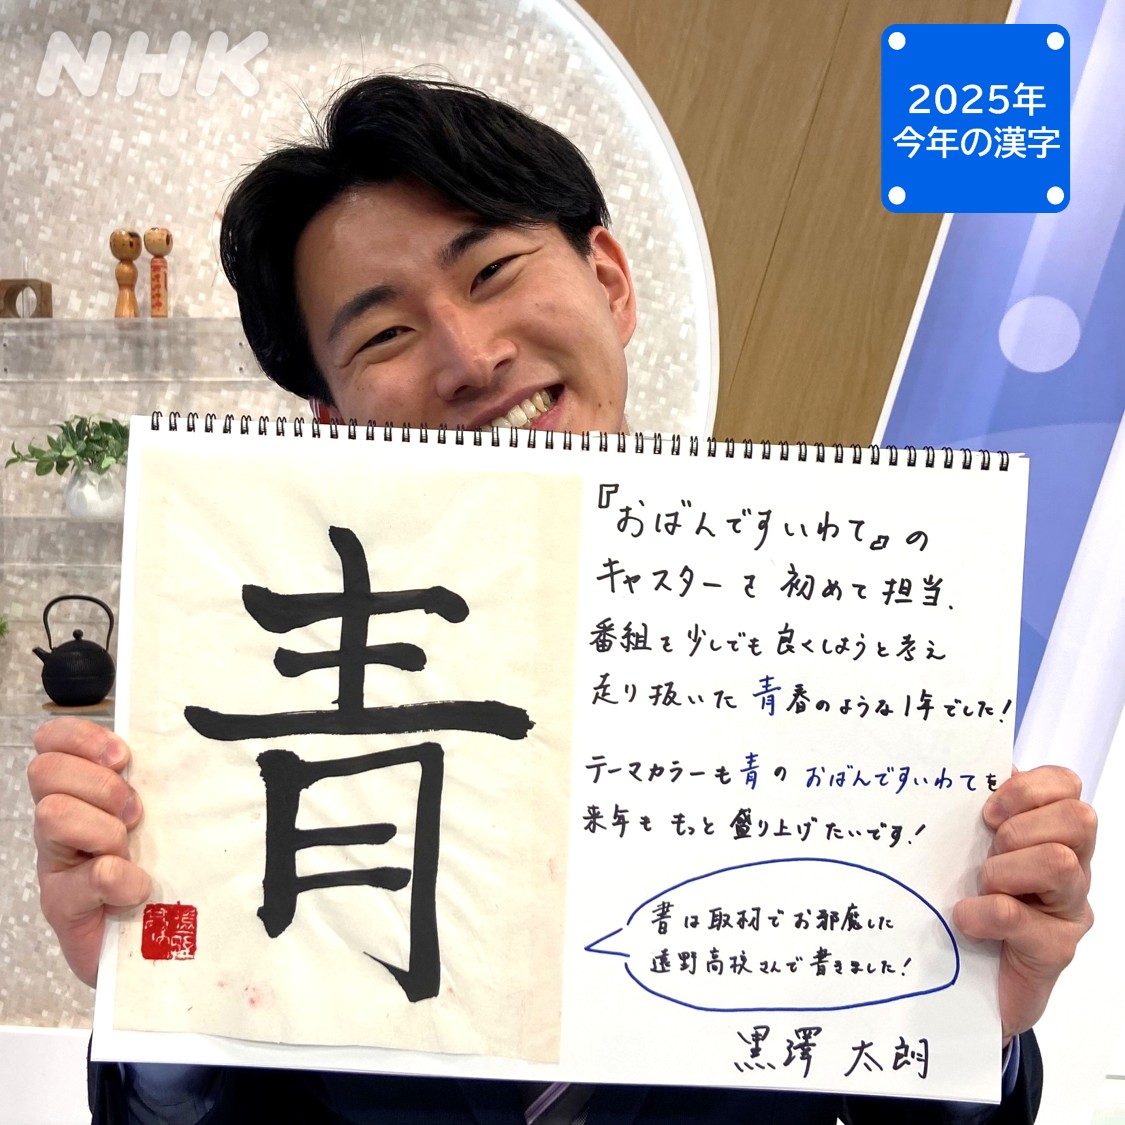 NHK
2025年
今年の漢字
青
『おばんですいわて』の
キャスターを初めて担当、
番組を少しでも良くしようと考え
走り抜いた青春のような1年でした!
テーマカラーも青のおばんですいわてを
来年ももっと盛り上げたいです!
書は取材でお邪魔した
遠野高校さんで書きました!
黒澤 太朗